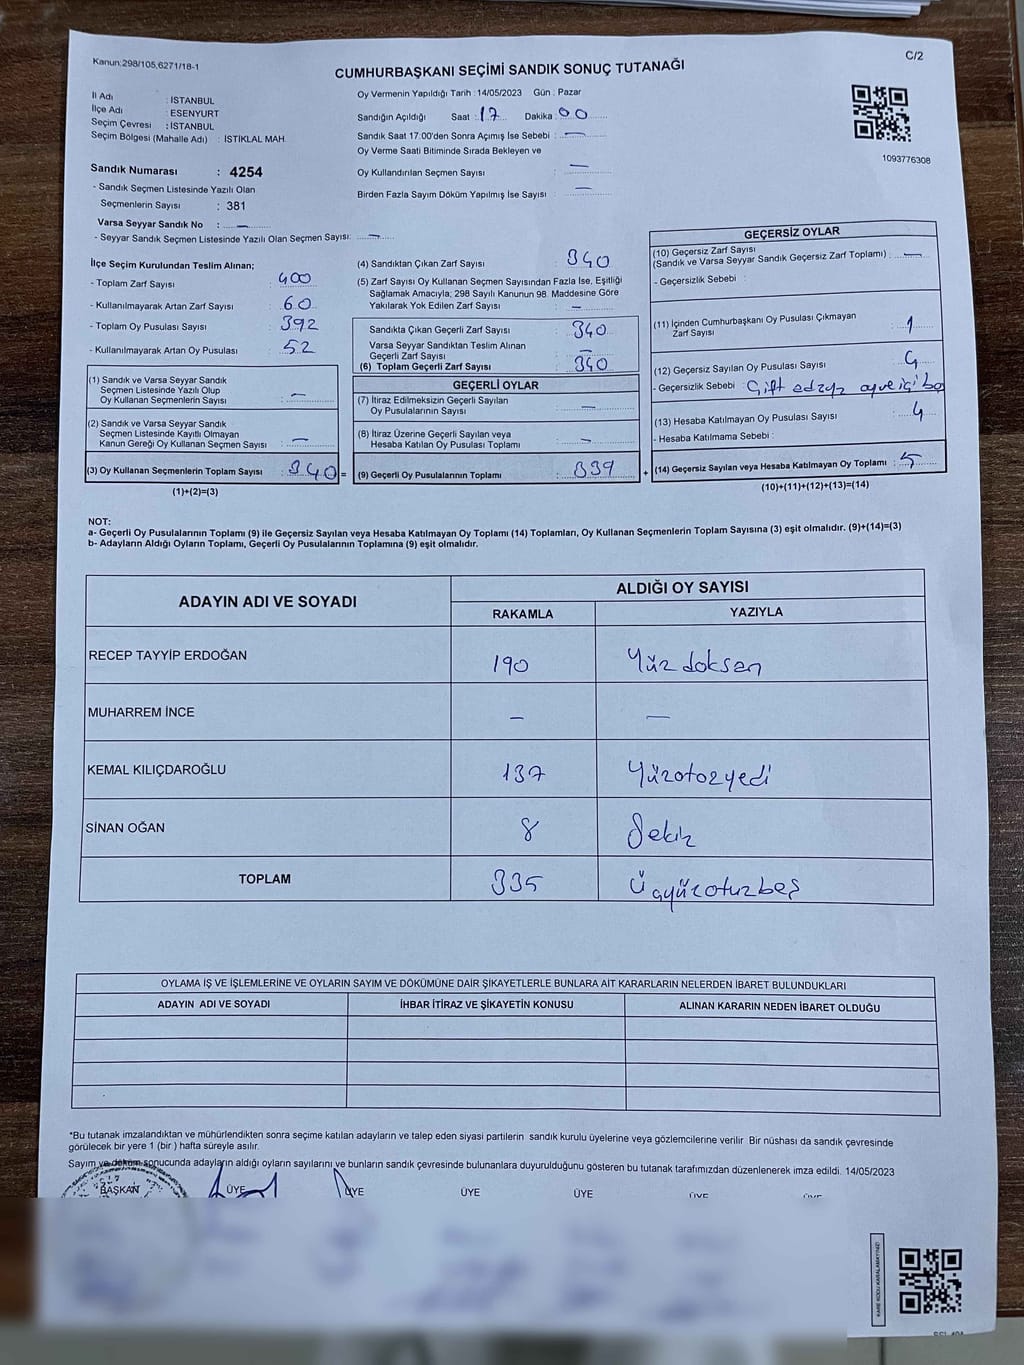 Kanun:298/105,6271/18-1
C/2
CUMHURBAŞKANI SEÇİMİ SANDIK SONUÇ TUTANAĞI
İl Adı : İSTANBUL
İlçe Adı : ESENYURT
Seçim Çevresi : İSTANBUL
Seçim Bölgesi (Mahalle Adı) : İSTİKLAL MAH.
Oy Vermenin Yapıldığı Tarih :14/05/2023 Gün : Pazar
Sandığın Açıldığı Saat : 17 Dakika : 00
Sandık Saat 17:00'den Sonra Açımış İse Sebebi : —
Oy Verme Saati Bitiminde Sırada Bekleyen ve
Oy Kullandırılan Seçmen Sayısı : —
Birden Fazla Sayım Döküm Yapılmış İse Sayısı : —
1093776308
Sandık Numarası : 4254
- Sandık Seçmen Listesinde Yazılı Olan
Seçmenlerin Sayısı : 381
Varsa Seyyar Sandık No : —
- Seyyar Sandık Seçmen Listesinde Yazılı Olan Seçmen Sayısı: —
İlçe Seçim Kurulundan Teslim Alınan;
- Toplam Zarf Sayısı : 400
- Kullanılmayarak Artan Zarf Sayısı : 60
- Toplam Oy Pusulası Sayısı : 392
- Kullanılmayarak Artan Oy Pusulası : 52
(1) Sandık ve Varsa Seyyar Sandık
Seçmen Listesinde Yazılı Olup
Oy Kullanan Seçmenlerin Sayısı : —
(2) Sandık ve Varsa Seyyar Sandık
Seçmen Listesinde Kayıtlı Olmayan
Kanun Gereği Oy Kullanan Seçmen Sayısı : —
(3) Oy Kullanan Seçmenlerin Toplam Sayısı : 340 =
(1)+(2)=(3)
(4) Sandıktan Çıkan Zarf Sayısı : 340
(5) Zarf Sayısı Oy Kullanan Seçmen Sayısından Fazla İse, Eşitliği
Sağlamak Amacıyla, 298 Sayılı Kanunun 98. Maddesine Göre
Yakılarak Yok Edilen Zarf Sayısı : —
Sandıkta Çıkan Geçerli Zarf Sayısı : 340
Varsa Seyyar Sandıktan Teslim Alınan
Geçerli Zarf Sayısı : —
(6) Toplam Geçerli Zarf Sayısı : 340
GEÇERLİ OYLAR
(7) İtiraz Edilmeksizin Geçerli Sayılan
Oy Pusulalarının Sayısı : —
(8) İtiraz Üzerine Geçerli Sayılan veya
Hesaba Katılan Oy Pusulası Toplamı : —
(9) Geçerli Oy Pusulalarının Toplamı : 339 +
GEÇERSİZ OYLAR
(10) Geçersiz Zarf Sayısı
(Sandık ve Varsa Seyyar Sandık Geçersiz Zarf Toplamı) : —
- Geçersizlik Sebebi :
(11) İçinden Cumhurbaşkanı Oy Pusulası Çıkmayan
Zarf Sayısı : 1
(12) Geçersiz Sayılan Oy Pusulası Sayısı :
- Geçersizlik Sebebi :
(13) Hesaba Katılmayan Oy Pusulası Sayısı : 4
- Hesaba Katılmama Sebebi :
(14) Geçersiz Sayılan veya Hesaba Katılmayan Oy Toplamı : 5
(10)+(11)+(12)+(13)=(14)
NOT:
a- Geçerli Oy Pusulalarının Toplamı (9) ile Geçersiz Sayılan veya Hesaba Katılmayan Oy Toplamı (14) Toplamları, Oy Kullanan Seçmenlerin Toplam Sayısına (3) eşit olmalıdır. (9)+(14)=(3)
b- Adayların Aldığı Oyların Toplamı, Geçerli Oy Pusulalarının Toplamına (9) eşit olmalıdır.
ADAYIN ADI VE SOYADI
ALDIĞI OY SAYISI
RAKAMLA YAZIYLA
RECEP TAYYİP ERDOĞAN 190 Yüz doksan
MUHARREM İNCE — —
KEMAL KILIÇDAROĞLU 137 Yüzotozyedi
SİNAN OĞAN 8 Sekiz
TOPLAM 335 Üçyüzotuzbeş
OYLAMA İŞ VE İŞLEMLERİNE VE OYLARIN SAYIM VE DÖKÜMÜNE DAİR ŞİKAYETLERLE BUNLARA AİT KARARLARIN NELERDEN İBARET BULUNDUKLARI
ADAYIN ADI VE SOYADI İHBAR İTİRAZ VE ŞİKAYETİN KONUSU ALINAN KARARIN NEDEN İBARET OLDUĞU
*Bu tutanak imzalandıktan ve mühürlendikten sonra seçime katılan adayların ve talep eden siyasi partilerin sandık kurulu üyelerine veya gözlemcilerine verilir Bir nüshası da sandık çevresinde
görülecek bir yere 1 (bir ) hafta süreyle asılır.
Sayım ve döküm sonucunda adayların aldığı oyların sayılarını ve bunların sandık çevresinde bulunanlara duyurulduğunu gösteren bu tutanak tarafımızdan düzenlenerek imza edildi. 14/05/2023
BAŞKAN ÜYE ÜYE ÜYE ÜYE ÜYE ÜYE
KARE KODU KARALAMAYINIZ!